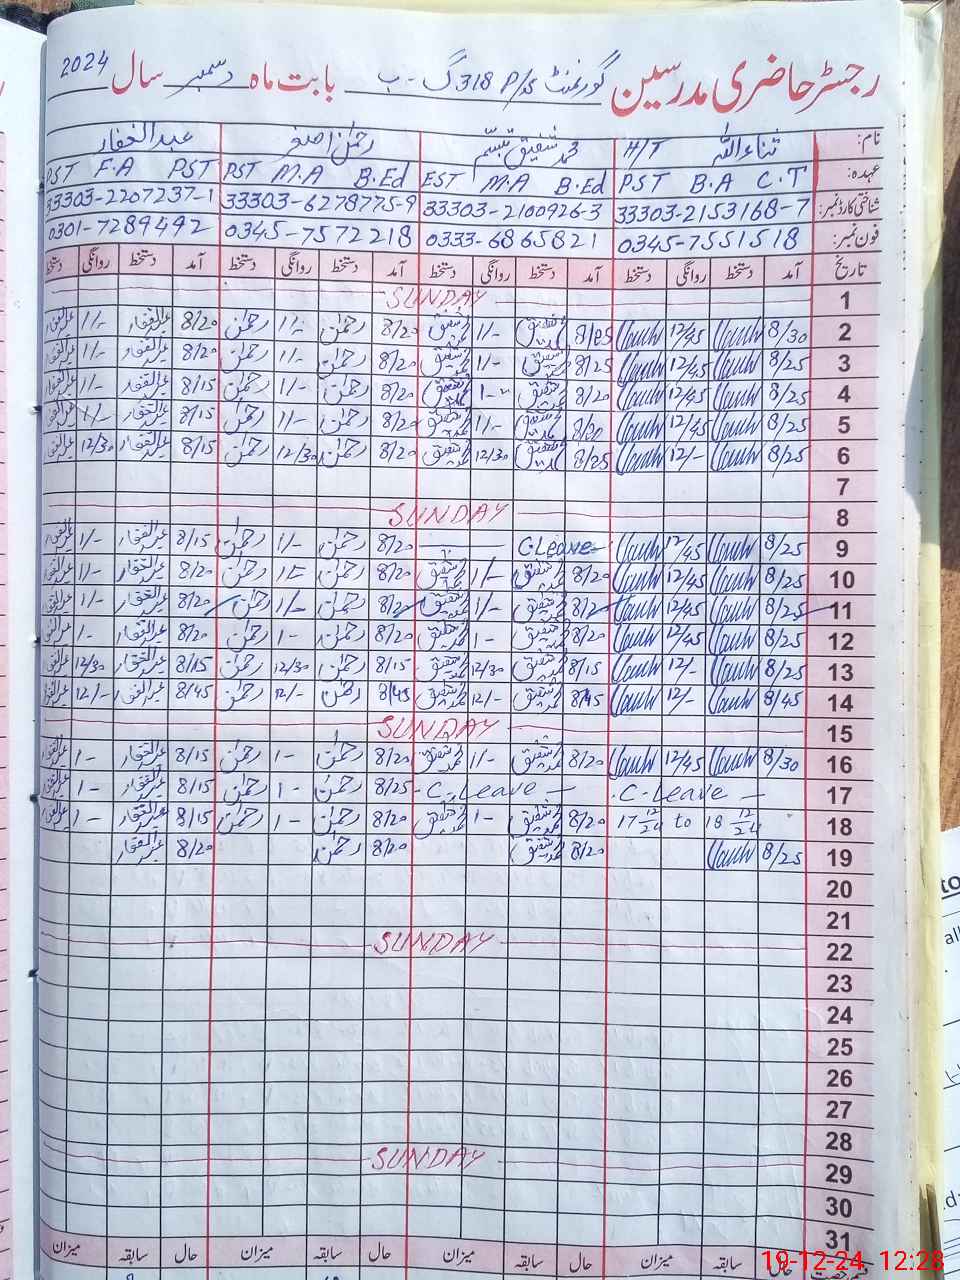 رجسٹر حاضری مدرسین گورنمنٹ P/S 318 گ۔ب بابت ماہ دسمبر سال 2024
نام: ثناء اللہ H/T محمد شفیق تبسم رحمٰن اصغر عبدالغفار
عہدہ: PST B.A C.T EST M.A B.Ed PST M.A B.Ed PST F.A PST
شناختی کارڈ نمبر: 33303-2153168-7 33303-2100926-3 33303-6278775-9 33303-2207237-1
فون نمبر: 0345-7551518 0333-6865821 0345-7572218 0301-7289492
تاریخ آمد دستخط روانگی دستخط آمد دستخط روانگی دستخط آمد دستخط روانگی دستخط آمد دستخط روانگی دستخط
1 SUNDAY
2 8/30 12/45 8/25 شفیق 1/- شفیق 8/20 رحمٰن 1/- رحمٰن 8/20 عبدالغفار 1/- عبدالغفار
3 8/25 12/45 8/25 شفیق 1/- شفیق 8/20 رحمٰن 1/- رحمٰن 8/20 عبدالغفار 1/- عبدالغفار
4 8/25 12/45 8/20 شفیق 1-- شفیق 8/20 رحمٰن 1/- رحمٰن 8/15 عبدالغفار 1/- عبدالغفار
5 8/25 12/45 8/20 شفیق 1/- شفیق 8/20 رحمٰن 1/- رحمٰن 8/15 عبدالغفار 1/- عبدالغفار
6 8/25 12/- 8/25 شفیق 12/30 شفیق 8/20 رحمٰن 12/30 رحمٰن 8/15 عبدالغفار 12/30 عبدالغفار
7
8 SUNDAY
9 8/25 12/45 C.Leave 8/20 رحمٰن 1/- رحمٰن 8/15 عبدالغفار 1/- عبدالغفار
10 8/25 12/45 8/20 شفیق 1/- شفیق 8/20 رحمٰن 1/- رحمٰن 8/20 عبدالغفار 1/- عبدالغفار
11 8/25 12/45 8/2 شفیق 1/- شفیق 8/2 رحمٰن 1/- رحمٰن 8/20 عبدالغفار 1/- عبدالغفار
12 8/25 12/45 8/20 شفیق 1- شفیق 8/20 رحمٰن 1- رحمٰن 8/20 عبدالغفار 1- عبدالغفار
13 8/25 12/- 8/15 شفیق 12/30 شفیق 8/15 رحمٰن 12/30 رحمٰن 8/15 عبدالغفار 12/30 عبدالغفار
14 8/45 12/- 8/45 شفیق 12/- شفیق 8/45 رحمٰن 12/- رحمٰن 8/45 عبدالغفار 12/- عبدالغفار
15 SUNDAY
16 8/30 12/45 8/20 شفیق 1/- شفیق 8/20 رحمٰن 1- رحمٰن 8/15 عبدالغفار 1- عبدالغفار
17 C.Leave - C.Leave - 8/25 رحمٰن 1- رحمٰن 8/15 عبدالغفار 1- عبدالغفار
18 17 12/24 to 18 12/24 8/20 شفیق 1- شفیق 8/20 رحمٰن 1- رحمٰن 8/15 عبدالغفار 1- عبدالغفار
19 8/25 8/20 شفیق 8/20 رحمٰن 8/20 عبدالغفار
20
21
22 SUNDAY
23
24
25
26
27
28
29 SUNDAY
30
31
حال سابقہ میزان حال سابقہ میزان حال سابقہ میزان حال سابقہ میزان
19-12-24, 12:28